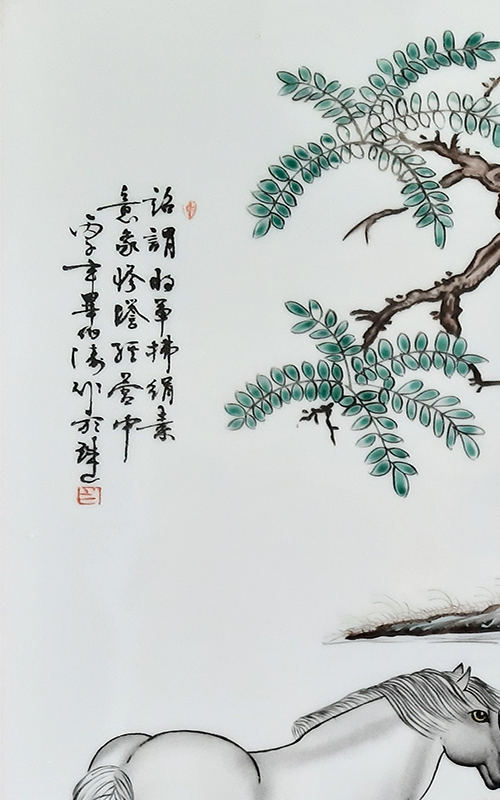 詔謂將軍拂絹素
意象慘澹經營中
丙子年畢伯濤作於珠山